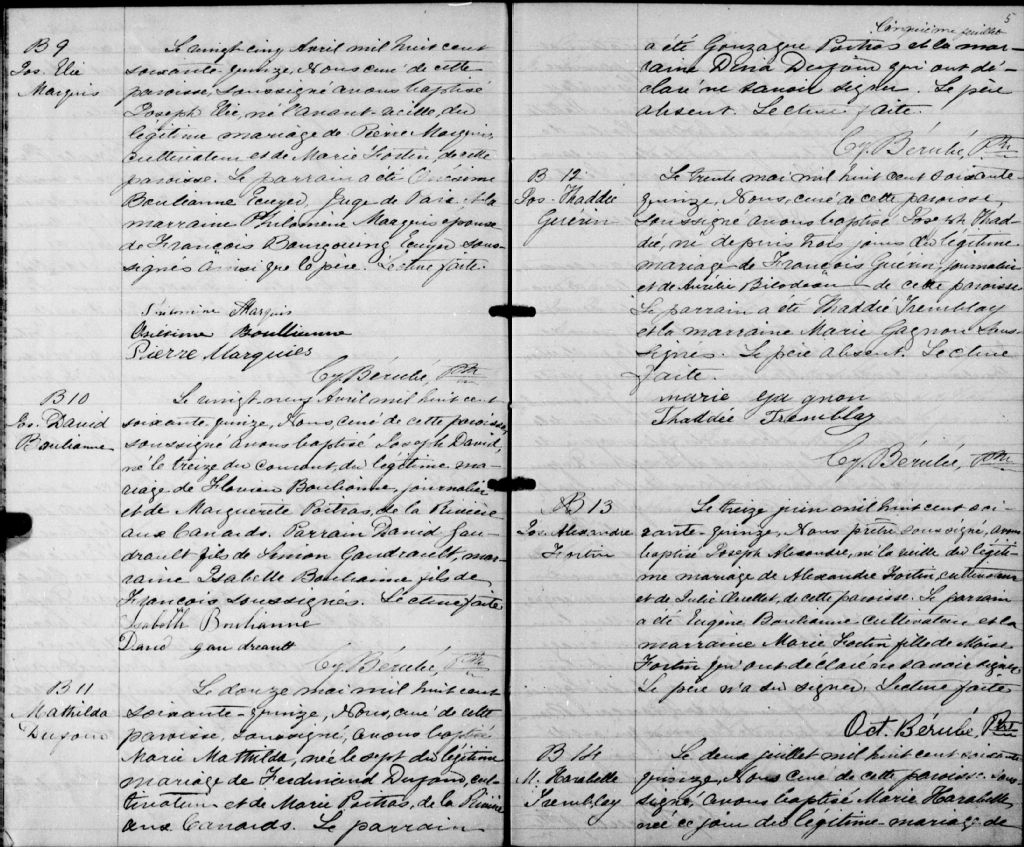 B 9
Jos. Elie
Marquis
Le vingt cinq Avril mil huit cent
soixante-quinze, Nous curé de cette
paroisse, soussigné avons baptisé
Joseph Elie, né l'avant-veille, du
légitime mariage de Pierre Marquis,
cultivateur et de Marie Fortin, de cette
paroisse. Le parrain a été Onésime
Boulianne Ecuyer, Juge de Paix et la
marraine Philomène Marquis épouse
de François Bourgoing Ecuyer sous-
signés ainsi que le père. Lecture faite.
Marquis
Onésime Boullienne
Pierre Marquies
Cy. Bérubé, Ptre
B 10
Jos. David
Boulianne
Le vingt neuf Avril mil huit cent
soixante quinze, Nous, curé de cette paroisse,
soussigné avons baptisé Joseph David,
né le treize du courant, du légitime ma-
riage de Flavien Boulianne, journalier
et de Marguerite Poitras, de la Rivière
aux Canards. Parrain David Gau-
drault fils de Simon Gaudrault, mar-
raine Isabelle Boulianne fils de
François soussignés. Lecture faite
Isabeth Boulianne
David gaudreault
Cy. Bérubé, Ptre
B 11
Mathilda
Dufour
Le douze mai mil huit cent
soixante-quinze, Nous, curé de cette
paroisse, soussigné, avons baptisé
Marie Mathilda, née le sept du légitime
mariage de Ferdinand Dufour, cul-
tivateur et de Marie Poitras, de la Rivière
aux Canards. Le parrain
5
Cinquième feuillet
a été Gonzague Poitras et la mar-
raine Dina Dufour qui ont dé-
claré ne savoir signer. Le père
absent. Lecture faite.
Cy. Bérubé, Ptre
B 12
Jos. Thaddée
Guérin
Le trente mai mil huit cent soixante-
quinze, Nous, curé de cette paroisse,
soussigné avons baptisé Joseph Thad-
dée, né depuis trois jours du légitime
mariage de François Guérin, journalier
et de Aurélie Bilodeau de cette paroisse
Le parrain a été Thaddée Tremblay
et la marraine Marie Gagnon sous-
signés. Le père absent. Lecture
faite.
marie ga gnon
Thaddée Tremblay
Cy. Bérubé, Ptre
B 13
Jos. Alexandre
Fortin
Le treize juin mil huit cent soi-
xante-quinze, Nous prêtre soussigné, avons
baptisé Joseph Alexandre, né la veille du légiti-
me mariage de Alexandre Fortin, cultivateur
et de Julie Ouellet, de cette paroisse. Le parrain
a été Eugène Boulianne cultivateur et la
marraine Marie Fortin fille de Moïse
Fortin qui ont declaré ne savoir signer
Le père n'a su signer. Lecture faite
Oct. Bérubé, Ptre
B 14
M. Harabelle
Tremblay
Le deux juillet mil huit cent soixante
quinze, Nous curé de cette paroisse sous-
signé, avons baptisé Marie Harabelle,
née ce jour du légitime-mariage de